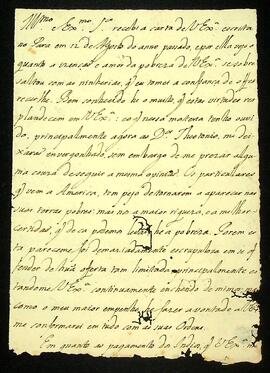 Illmo
Exmo Sr. recebi a carta de V Exa escrita
no Pará em 12 de Agosto do anno passado, e por ella vejo
quanto a crença e amor da pobreza de V Exa se sobre
saltou com as ninherias, q eu tomei a confiança de
Bem conhecido he o muito, q estas virtudes res
plandecem em V Exa: e o q nesta materia tenho ouvi
do, principalmente agora ao Dr Theotonio, me dei
xara envergonhado, sem embargo de me prezar algu
ma couza de seguir a mesma opinião. Os particulares
q vem a America, tem pejo de tornarem a aparecer nas
suas terras pobres: mas não a maior riqueza, e a melhor
q de ca podemos levar he a pobreza. Porem es
ta pareceme, foi demaziadamente escrupulosa em se of
fender de huã oferta tam limitada, principalmente es
tandome V Exa continuamente enchendo de mimos: mas
como o meu maior empenho he fazer a vontade a V Ex
me conformarei em tudo com as suas Ordens.
Em quanto ao pagamento do Indigo, q V Exa m